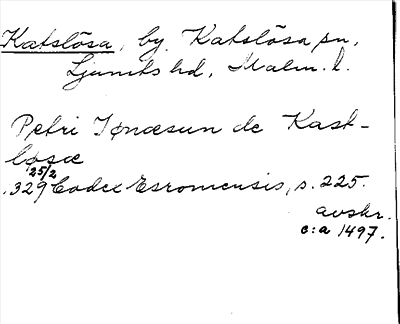 Katslösa, by. Katslösa sn,
Ljunits hd, Malm. l.
Petri Iønæsun de Kast-
løsæ
25/2
1329 Codex Esromensis, s. 225.
avskr.
c:a 1497.